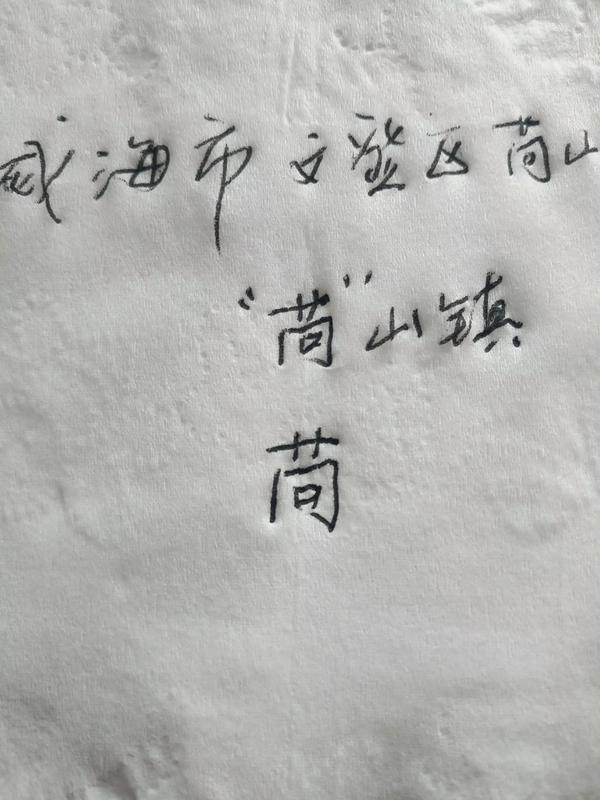 威海市文登区苘山
“苘”山镇
苘